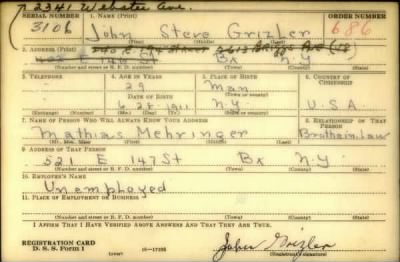 2341 Webster Ave.
SERIAL NUMBER 1. NAME (Print) ORDER NUMBER
3106 John Steve Grizler 686
2. ADDRESS (Print)
E 146 St Bx N.Y
3. TELEPHONE 4. AGE IN YEARS 5. PLACE OF BIRTH 6. COUNTRY OF CITIZENSHIP
29 Man.
DATE OF BIRTH
6-28-1911 N.Y U.S.A
7. NAME OF PERSON WHO WILL ALWAYS KNOW YOUR ADDRESS 8. RELATIONSHIP OF THAT PERSON
Mathias Mehringer Brother in Law
9. ADDRESS OF THAT PERSON
521 E 147 St Bx N.Y
(Number and street or R. F. D. number) (Town) (County) (State)
10. EMPLOYER'S NAME
Unemployed
11. PLACE OF EMPLOYMENT OR BUSINESS
(Number and street or R. F. D. number) (Town) (County) (State)
I AFFIRM THAT I HAVE VERIFIED ABOVE ANSWERS AND THAT THEY ARE TRUE.
REGISTRATION CARD
D. S. S. Form 1 (over) 16—17105 John Grizler
(Registrant's signature)